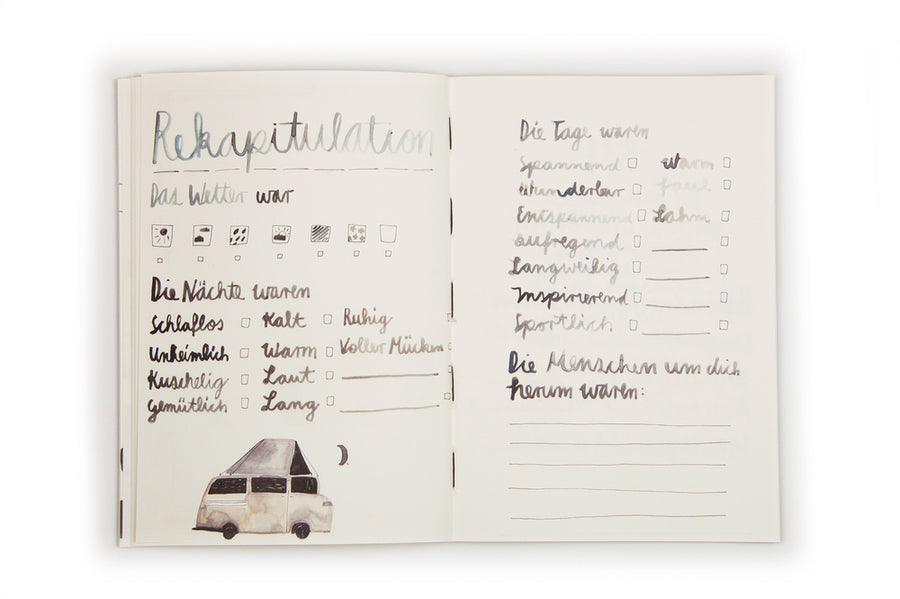 Rekapitulation
Das Wetter war
Die Nächte waren
Schlaflos Kalt Ruhig
Unheimlich Warm Voller Mücken
Kuschelig Laut
Gemütlich Lang
Die Tage waren
Spannend Warm
Wunderbar faul
Entspannend Lahm
aufregend
Langweilig
Inspirierend
Sportlich
Die Menschen um dich
herum waren: